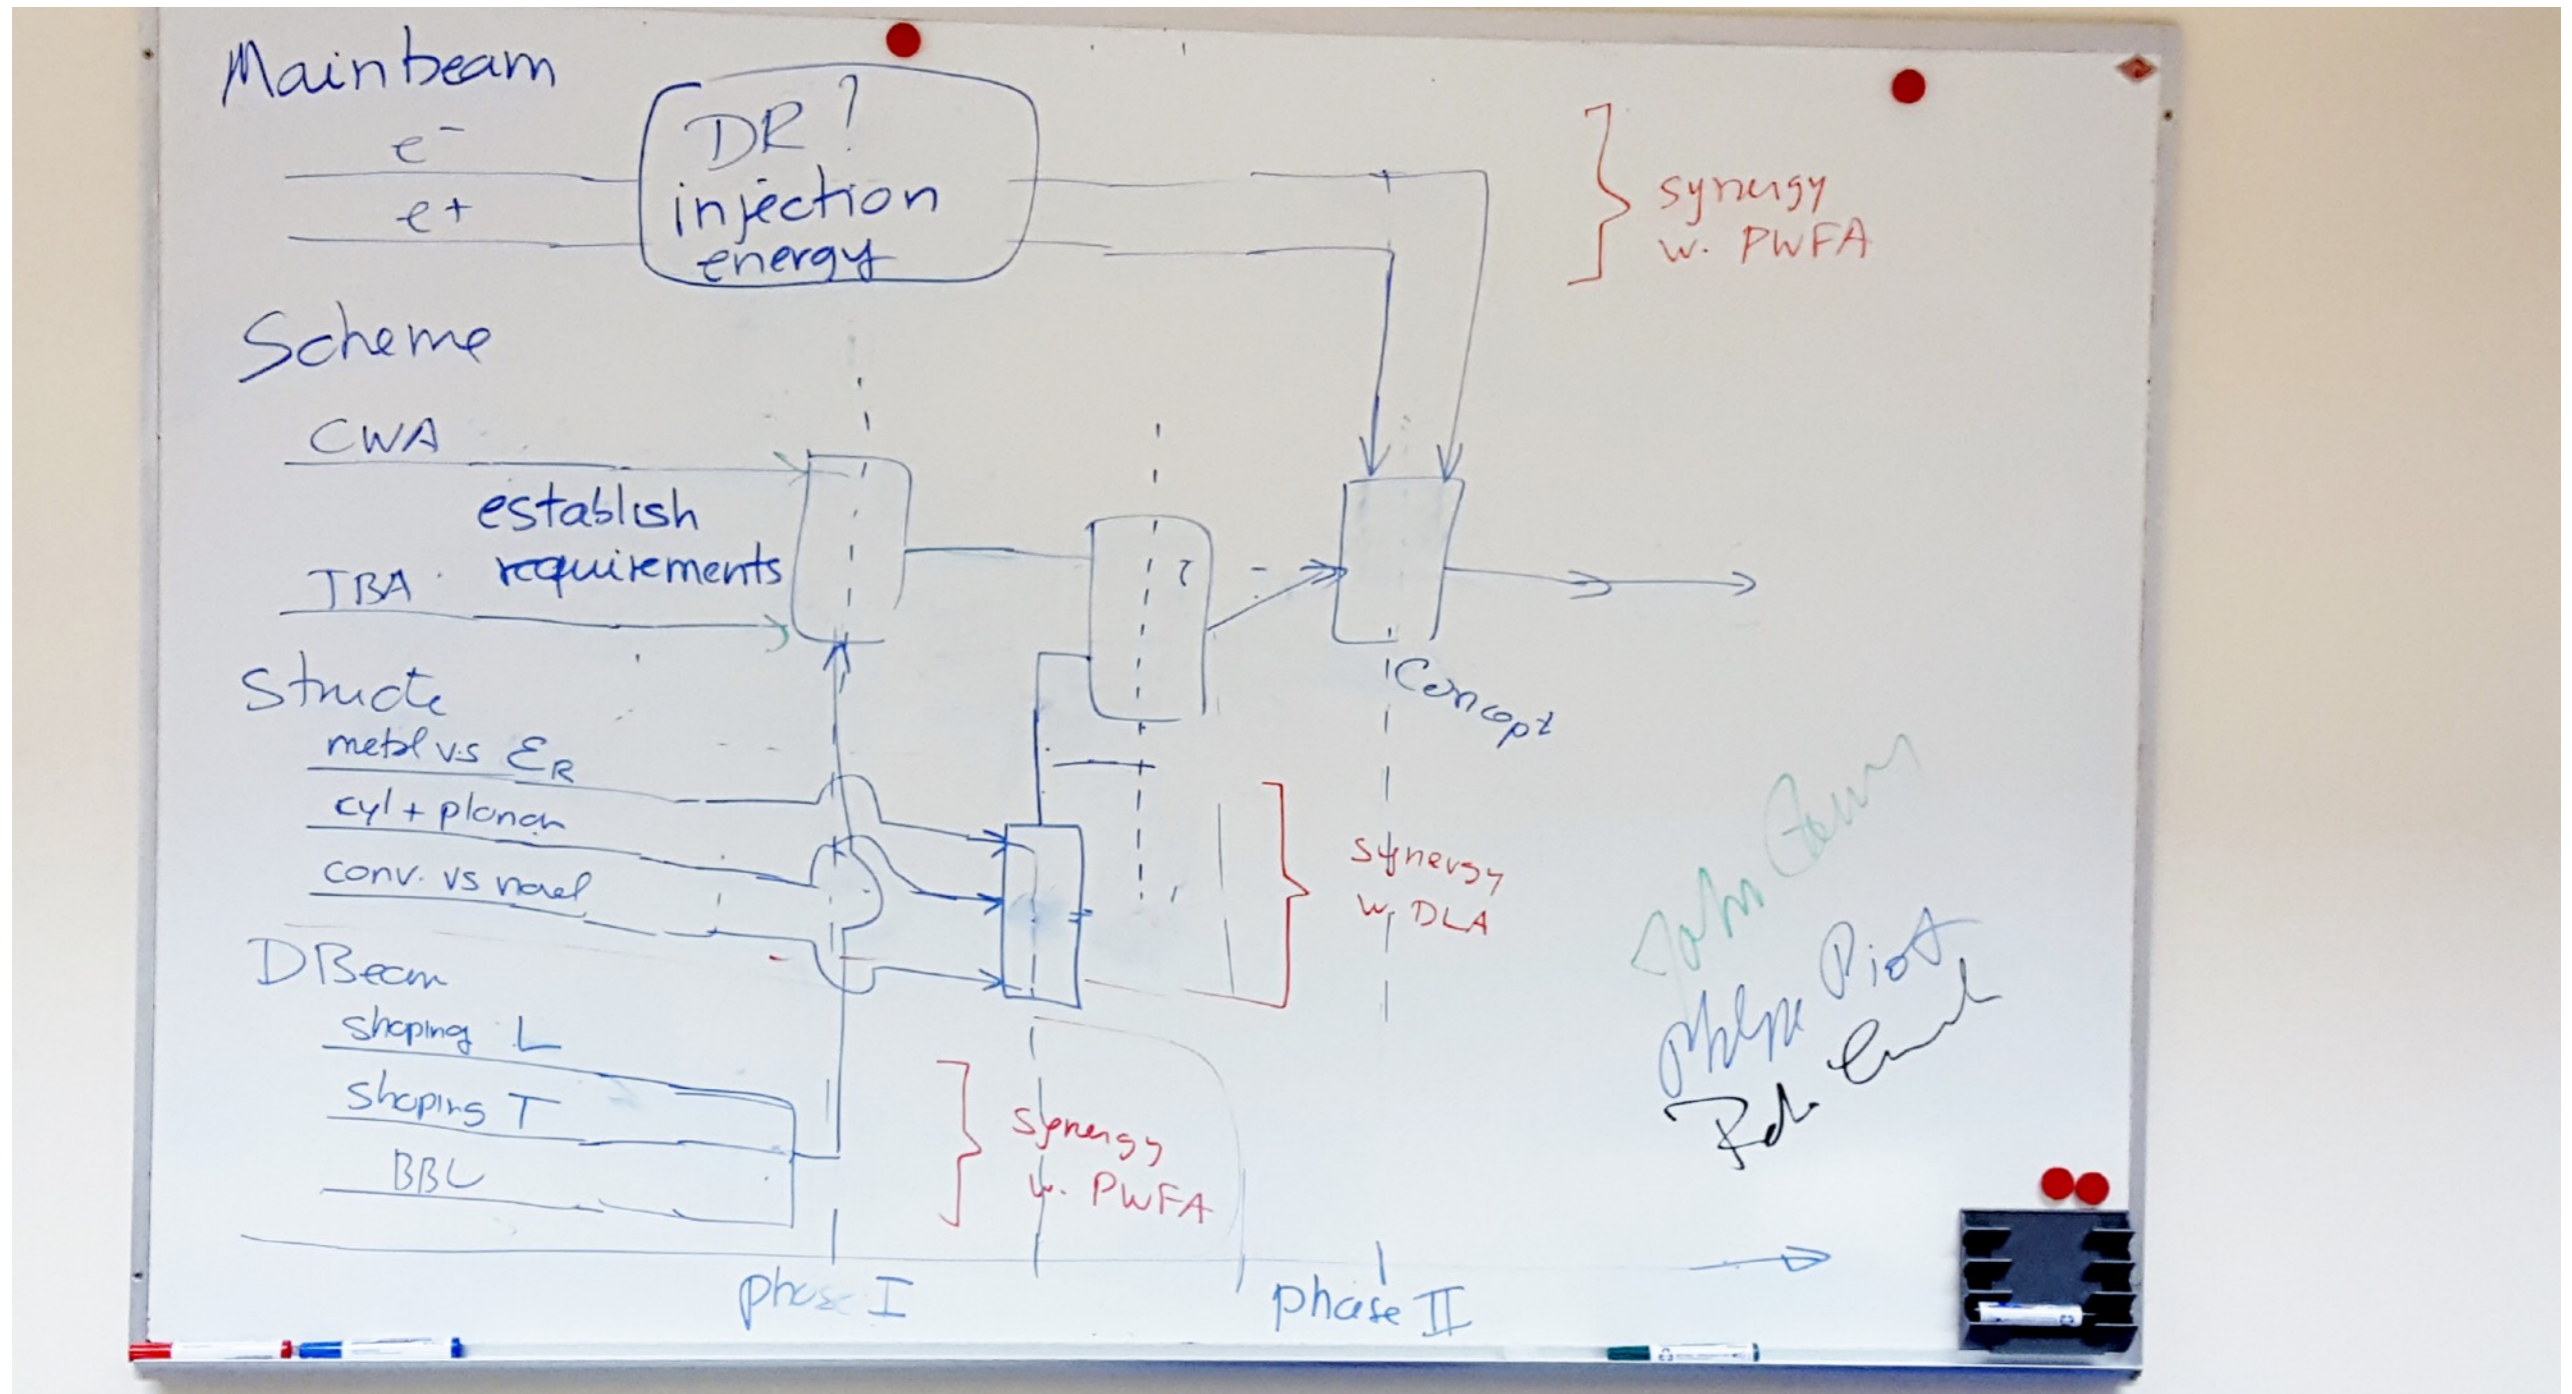 Mainbeam
e-
e+
DR?
injection
energy
synergy
w. PWFA
Scheme
CWA
establish
requirements
TBA
?
Concept
Structe
metal vs εR
cyl + planar
conv. vs novel
synergy
w. DLA
DBeam
shaping L
shaping T
BBU
synergy
w. PWFA
John
Philippe Piot
phase I
phase II